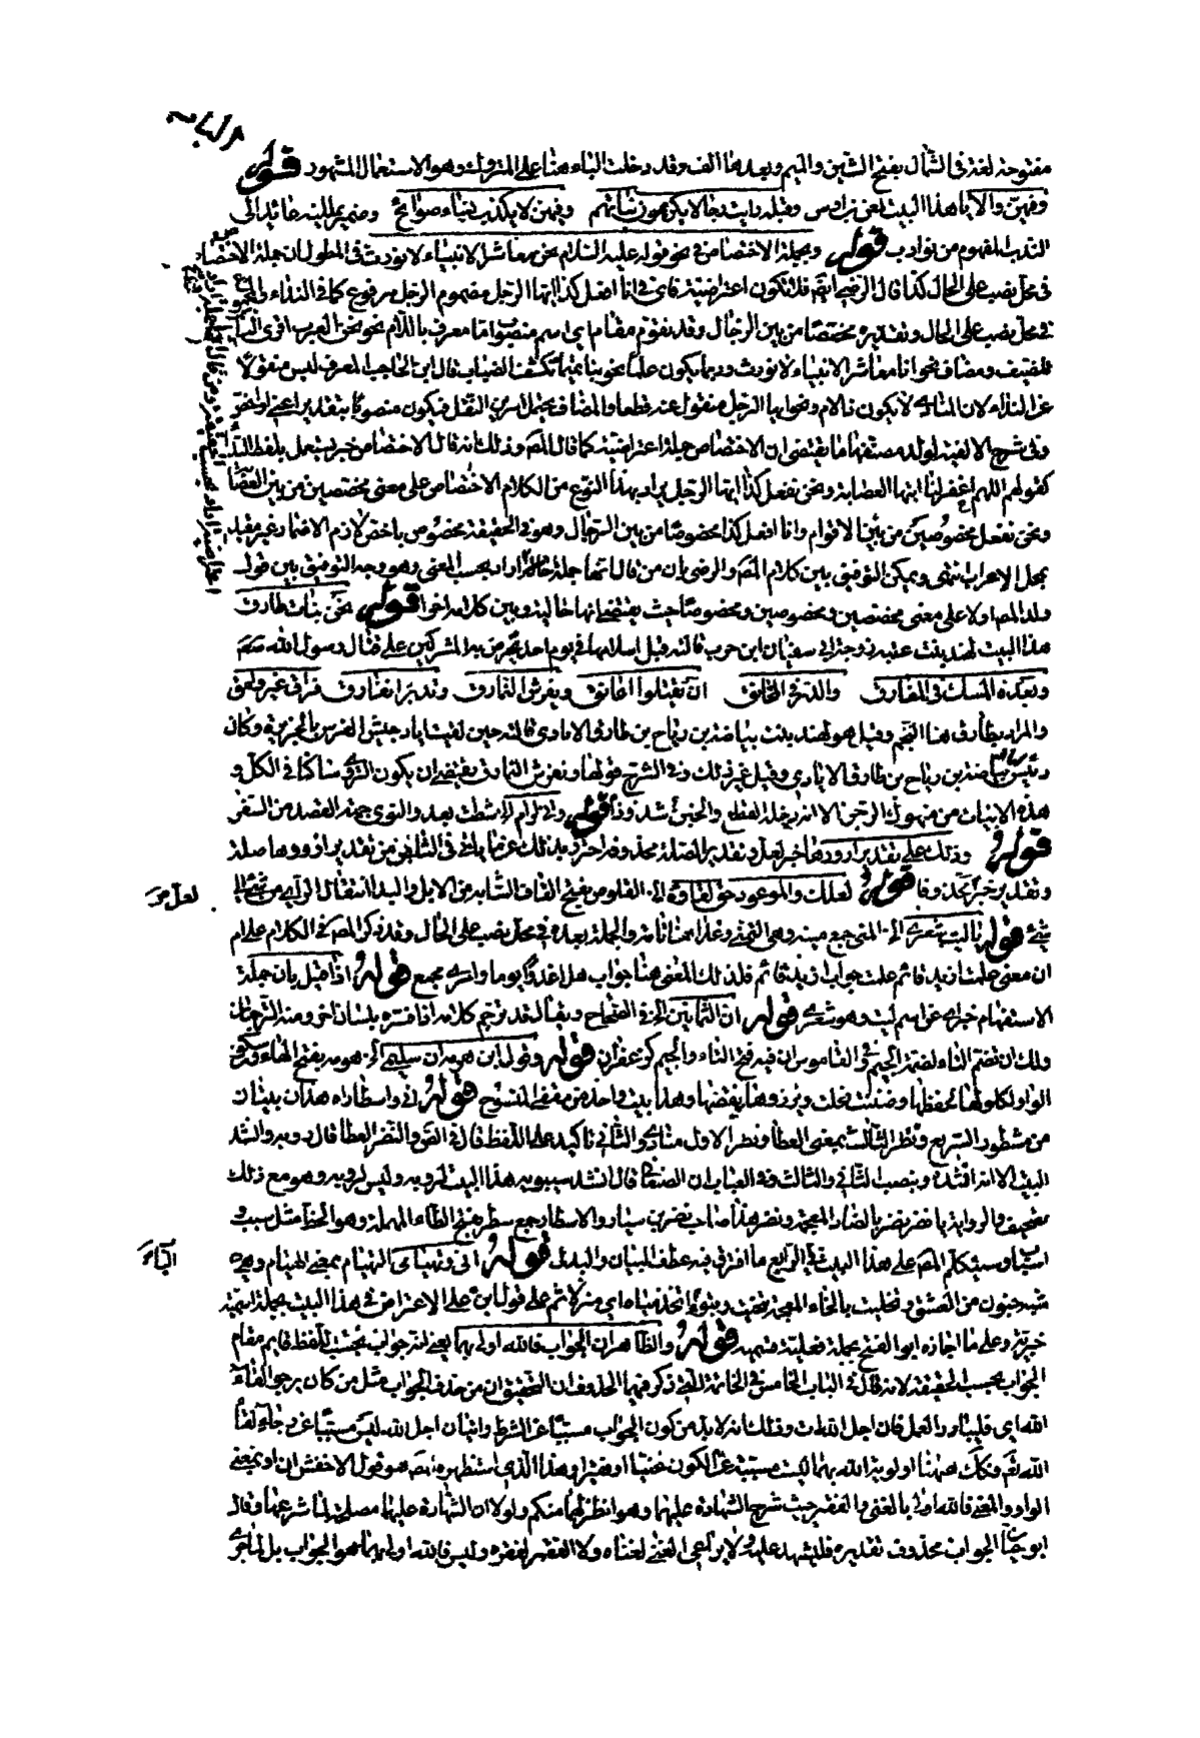 مفتوحة لغة في الشمال بفتح الشين والميم وبعدهما الف وقد دخلت الباء هنا على المتروك وهو الاستعمال المشهور قوله
وفيهن والايام هذا البيت لمعن بن اوس وقبله رايت رجالا يكرهون بناتهم وفيهن لا تكذب نساء صوالح وضمير يمللنه عائد الى
الندب المفهوم من نوادب قوله وبجملة الاختصاص في نحو قوله عليه السلام نحن معاشر الانبياء لا نورث في المطول ان جملة الاختصاص
في محل نصب على الحال كذا قال الرضي ايضا فلا تكون اعتراضية قال في انا افعل كذا ايها الرجل مضموم الرجل مرفوع كما في النداء والمجموع
في محل نصب على الحال وتقديره مختصا من بين الرجال وقد يقوم مقام اي اسم منصوب اما معرف باللام نحو نحن العرب اقرى الناس
للضيف ومضاف نحو انا معاشر الانبياء لا نورث وربما يكون علما نحو بنا تميما تكشف الضباب قال ابن الحاجب المعرف ليس منقولا
عن النداء لان المنادى لا يكون ذا لام ونحو ايها الرجل منقول عنه قطعا والمضاف يحتمل الامرين النقل فيكون منصوبا بتقدير اعني او اخص
وفي شرح الالفية لولد مصنفها ما يقتضي ان الاختصاص جملة اعتراضية كما قال المص وذلك انه قال الاختصاص خبر يستعمل بلفظ النداء
كقولهم اللهم اغفر لنا ايتها العصابة ونحن نفعل كذا ايها الرجل يراد بهذا النوع من الكلام الاختصاص على معنى مختصين من بين العصائب
ونحن نفعل مخصوصين من بين الاقوام وانا افعل كذا مخصوصا من بين الرجال وهو في الحقيقة مخصوص باخص لازم الاضمار غير مقبل
بمحل الاعراب انتهى ويمكن التوفيق بين كلام المص والرضي بان من قال انها جملة حالية اراد بحسب المعنى وهو وجه التوفيق بين قوله
ولد المص اولا على معنى مختصين ومخصوصين ومخصوصا حيث يقتضي انها حالية وبين كلامه اخرا قوله نحن بنات طارق
هذا البيت لهند بنت عتبة زوجة ابي سفيان ابن حرب قالته قبل اسلامها في يوم احد تحرض به المشركين على قتال رسول الله صلعم
وبعده المسك في المفارق والدر في المخانق ان تقبلوا نعانق ونفرش النمارق وتدبروا نفارق فراق غير وامق
والمراد بطارق هنا النجم وقيل هو لهند بنت بياضة بن رياح بن طارق الايادي قالته حين لقيت اياد جيش الفرس بالجزيرة وكان
رئيس اياد بياضة بن رياح بن طارق الايادي وقيل غير ذلك وفي الشرح قولها ونفرش النمارق يقتضي ان يكون الروي ساكنا في الكل و
هذه الابيات من منهوك الرجز الا انه دخله القطع والخبن شذوذا قوله واني لرام الخ شطت بعدت والنوى جهة القصد من السفر
قوله وذلك على تقدير ازورها خبر لعل وتقدير الصلة محذوفة احترز بذلك عما ياتي في الثاني من تقدير ازورها صلة
وتقدير خبر لعل محذوفا قوله لعلك والموعود حق لقاؤه الخ القلوص بفتح القاف الشابة من الابل والبداء انتقال الراي من شيء الى
شيء قوله يا ليت شعري الخ المنى جمع منية وهي التمني وغدا هنا تامة والجملة بعده في محل نصب على الحال وقد ذكر المص في الكلام على ام
ان معنى علمت ازيد قائم علمت جواب ازيد قائم فلذلك المعنى هنا جواب هل اغدون يوما وامري مجمع قوله اذا قيل بان جملة
الاستفهام خبر اي عن اسم ليت وهو شعري قوله ان الثمانين الخ في الصحاح ويقال قد ترجم كلامه اذا فسره بلسان اخر ومنه الترجمان
ولك ان تضم التاء لضمة الجيم وفي القاموس ان فيه فتح التاء والجيم كزعفران قوله وقول ابن هرمة ان سليمى الخ هرمة بفتح الهاء وسكون
الواو لكلؤها يحفظها وضنت بخلت ويرزوها ينقصها وهذا بيت واحد من مقفى المنسرح قوله اني واسطار الخ هذان بيتان
من مشطور السريع ونظر الثالث بمعنى العطاء ونصر الاول منادى والثاني تاكيد على اللفظ قال في الصحاح والنصر العطا قال رؤبة وانشد
البيت الا انه انشده بنصب الثاني والثالث وفي العباب ان الصنعاني قال انشد سيبويه هذا البيت لرؤبة وليس لرؤبة وهو مع ذلك
تصحيف والرواية يا نضر نضر بالضاد المعجمة ونضر هذا صاحب نصر بن سيار والاسطار جمع سطر بفتح الطاء المهملة وهو الخط مثل سبب و
اسباب وسيتكلم المص على هذا البيت في الرابع ما افترق فيه عطف البيان والبدل قوله اني وتهيامي التهيام بمعنى الهيام وهو
شبه جنون من العشق وتخليت بالخاء المعجمة
خبرية وعلى ما اجازه ابو الفتح بجملة فعلية قسمية قوله والظاهر ان الجواب فالله اولى بهما يعني انه جواب بحسب اللفظ قائم مقام
الجواب بحسب الحقيقة لانه قال في الباب الخامس في الخاتمة التي ذكر فيها الحذف ان التحقيق ان من حذف الجواب مثل من كان يرجو لقاء
الله اي فليبادر بالعمل فان اجل الله لات وذلك انه لا بد من كون الجواب مسببا عن الشرط واتيان اجل الله ليس مسببا عن رجاء لقاء
الله تعم وكذلك ههنا اولوية الله بهما ليست مسببة عن الكون غنيا او فقيرا وهذا الذي استظهره المص هو قول الاخفش ان او بمعنى
الواو والمعنى فالله اولى بالغني والفقير حيث شرع الشهادة عليهما وهو انظر لهما منكم ولولا ان الشهادة عليهما مصلحة لهما لما شرعها وقال
ابو حيان الجواب محذوف تقديره فليشهد عليه ولا يراعي الغني لغناه ولا الفقير لفقره وليس فالله اولى بهما هو الجواب بل لما جرى